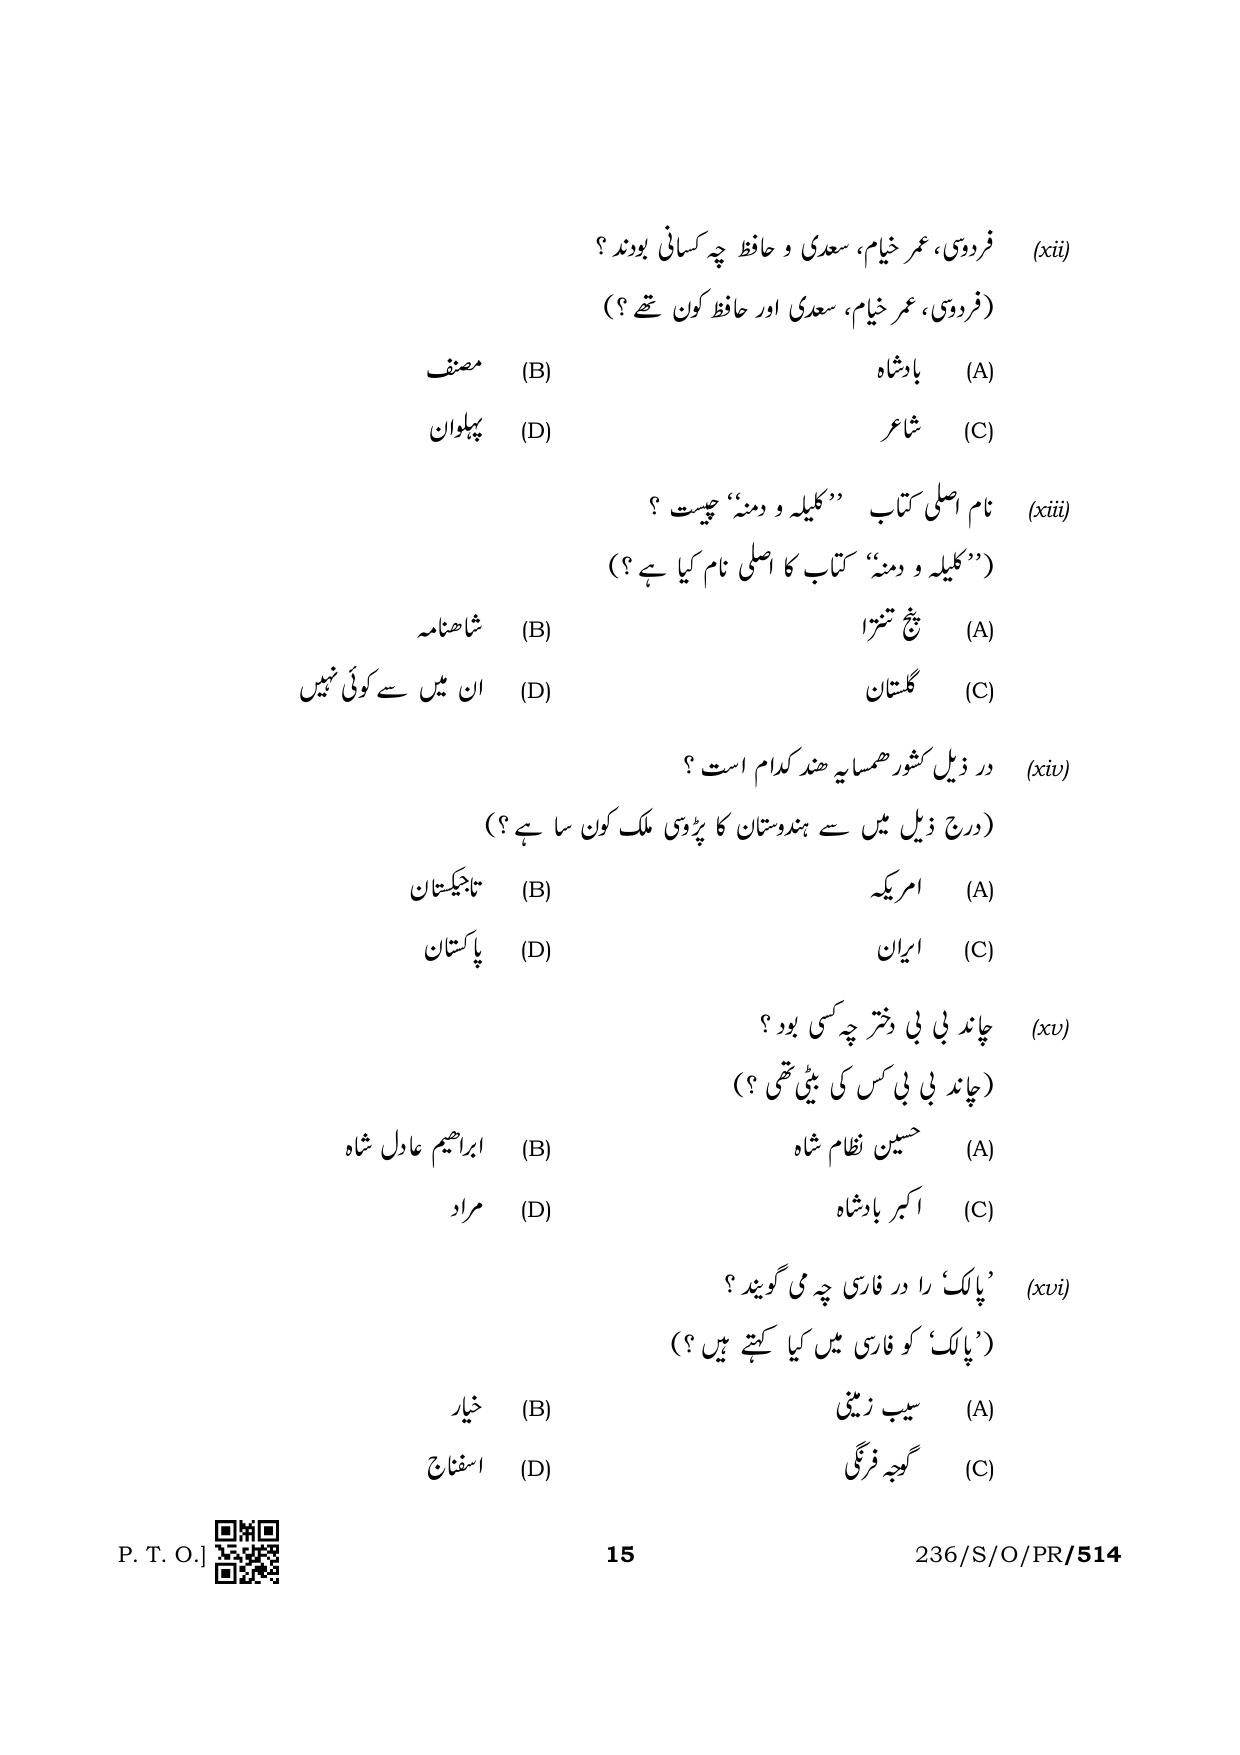 (xii) فردوسی، عمر خیام، سعدی و حافظ چہ کسانی بودند ؟
(فردوسی، عمر خیام، سعدی اور حافظ کون تھے ؟)
(A) بادشاہ (B) مصنف
(C) شاعر (D) پہلوان
(xiii) نام اصلی کتاب ’’کلیلہ و دمنہ‘‘ چیست ؟
(’’کلیلہ و دمنہ‘‘ کتاب کا اصلی نام کیا ہے ؟)
(A) پنج تنترا (B) شاھنامہ
(C) گلستان (D) ان میں سے کوئی نہیں
(xiv) در ذیل کشور ھمسایہ ھند کدام است ؟
(درج ذیل میں سے ہندوستان کا پڑوسی ملک کون سا ہے ؟)
(A) امریکہ (B) تاجیکستان
(C) ایران (D) پاکستان
(xv) چاند بی بی دختر چہ کسی بود ؟
(چاند بی بی کس کی بیٹی تھی ؟)
(A) حسین نظام شاہ (B) ابراھیم عادل شاہ
(C) اکبر بادشاہ (D) مراد
(xvi) ’پالک‘ را در فارسی چہ می گویند ؟
(’پالک‘ کو فارسی میں کیا کہتے ہیں ؟)
(A) سیب زمینی (B) خیار
(C) گوجہ فرنگی (D) اسفناج
236/S/O/PR/514 15 P. T. O.]